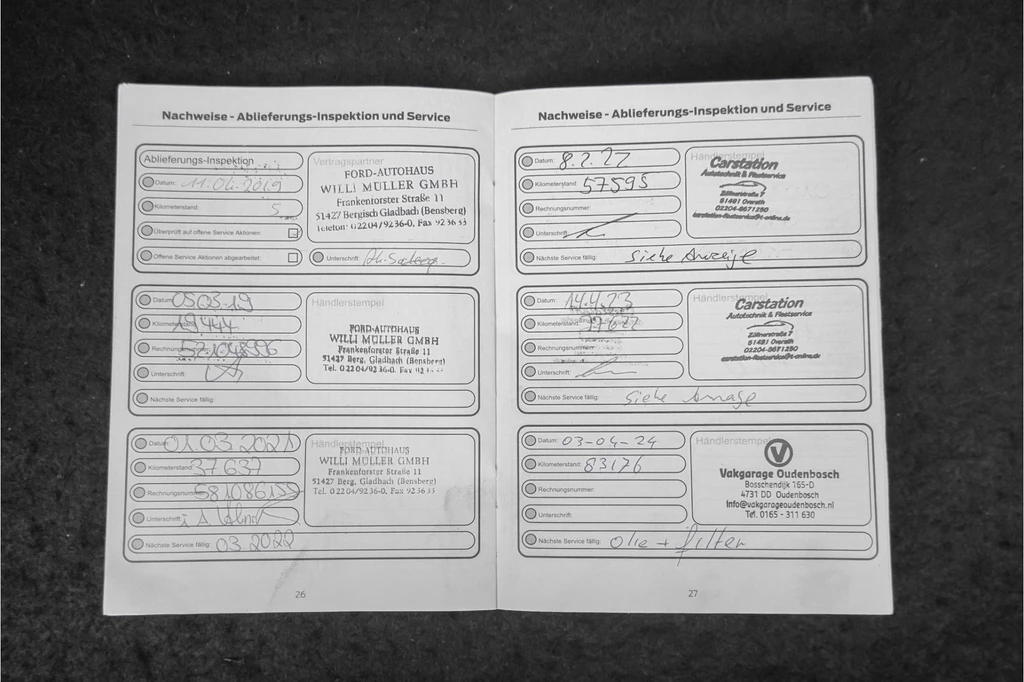 Nachweise - Ablieferungs-Inspektion und Service
Ablieferungs-Inspektion
Datum: 11.04.2019
Kilometerstand: 5
Überprüft auf offene Service Aktionen:
Offene Service Aktionen abgearbeitet:
Vertragspartner
FORD-AUTOHAUS
WILLI MÜLLER GMBH
Frankenforster Straße 11
51427 Bergisch Gladbach (Bensberg)
Telefon: 02204/9236-0, Fax 923633
Unterschrift:
Datum:
Kilometerstand: 19444
Rechnungsnummer:
Unterschrift:
Nächste Service fällig:
Händlerstempel
FORD-AUTOHAUS
WILLI MÜLLER GMBH
Frankenforster Straße 11
51427 Berg. Gladbach (Bensberg)
Tel. 02204/9236-0, Fax
Datum: 01.03.2021
Kilometerstand: 37637
Rechnungsnummer:
Unterschrift: i.A.
Nächste Service fällig: 03.2022
Händlerstempel
FORD-AUTOHAUS
WILLI MÜLLER GMBH
Frankenforster Straße 11
51427 Berg. Gladbach (Bensberg)
Tel. 02204/9236-0, Fax 923633
26
Nachweise - Ablieferungs-Inspektion und Service
Datum: 8.2.22
Kilometerstand: 57595
Rechnungsnummer:
Unterschrift:
Nächste Service fällig: siehe Anzeige
Händlerstempel
Carstation
Autotechnik & Fleetservice
51491 Overath
02204-8671280
carstation-fleetservice@t-online.de
Datum: 14.4.23
Kilometerstand:
Rechnungsnummer:
Unterschrift:
Nächste Service fällig: siehe
Händlerstempel
Carstation
Autotechnik & Fleetservice
51491 Overath
02204-8671280
carstation-fleetservice@t-online.de
Datum: 03-04-24
Kilometerstand: 83176
Rechnungsnummer:
Unterschrift:
Nächste Service fällig: olie + filter
Händlerstempel
Vakgarage Oudenbosch
Bosschendijk 165-D
4731 DD Oudenbosch
info@vakgarageoudenbosch.nl
Tel. 0165 - 311 630
27